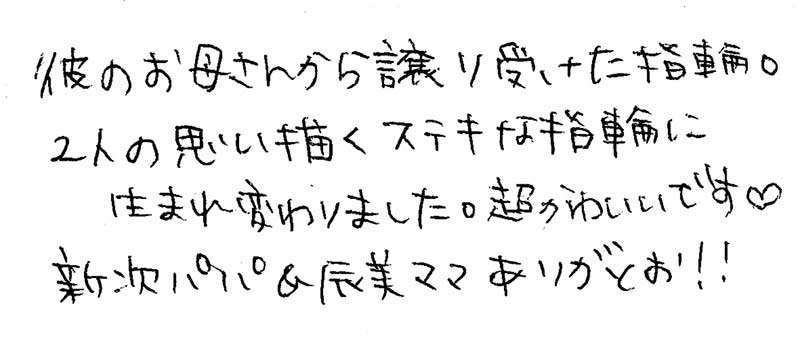 彼のお母さんから譲り受けた指輪。
2人の思い描くステキな指輪に
生まれ変わりました。超かわいいです♡
新次パパ&辰美ママありがとお!!